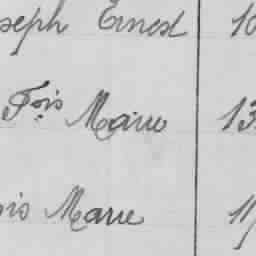 seph Ernest 10
Fois Marie 13
ois Marie 11